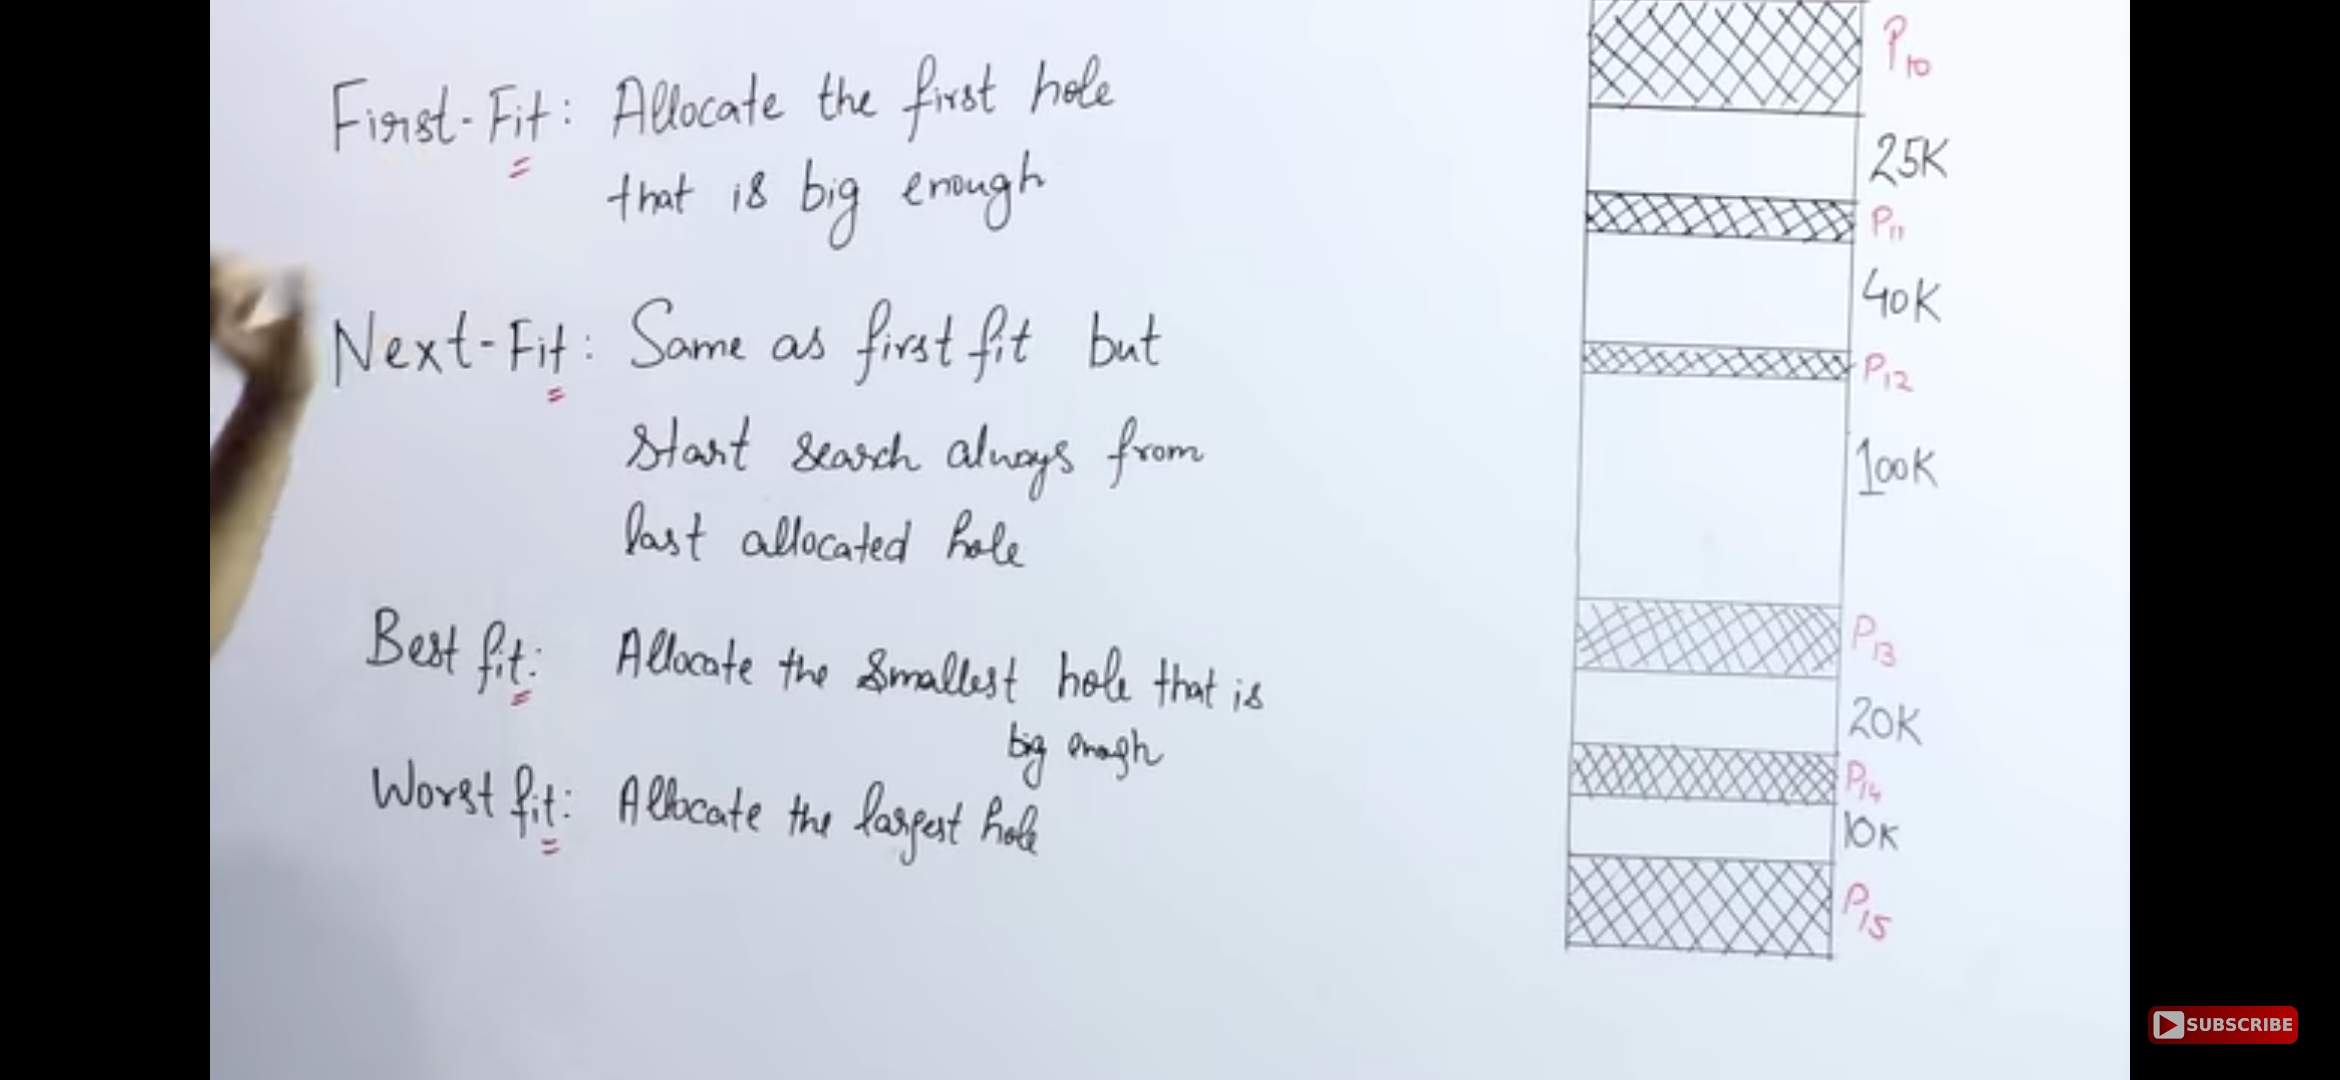 First-Fit: Allocate the first hole
that is big enough
Next-Fit: Same as first fit but
start search always from
last allocated hole
Best fit: Allocate the smallest hole that is
big enough
Worst fit: Allocate the largest hole
P10
25K
P11
40K
P12
100K
P13
20K
P14
10K
P15
SUBSCRIBE